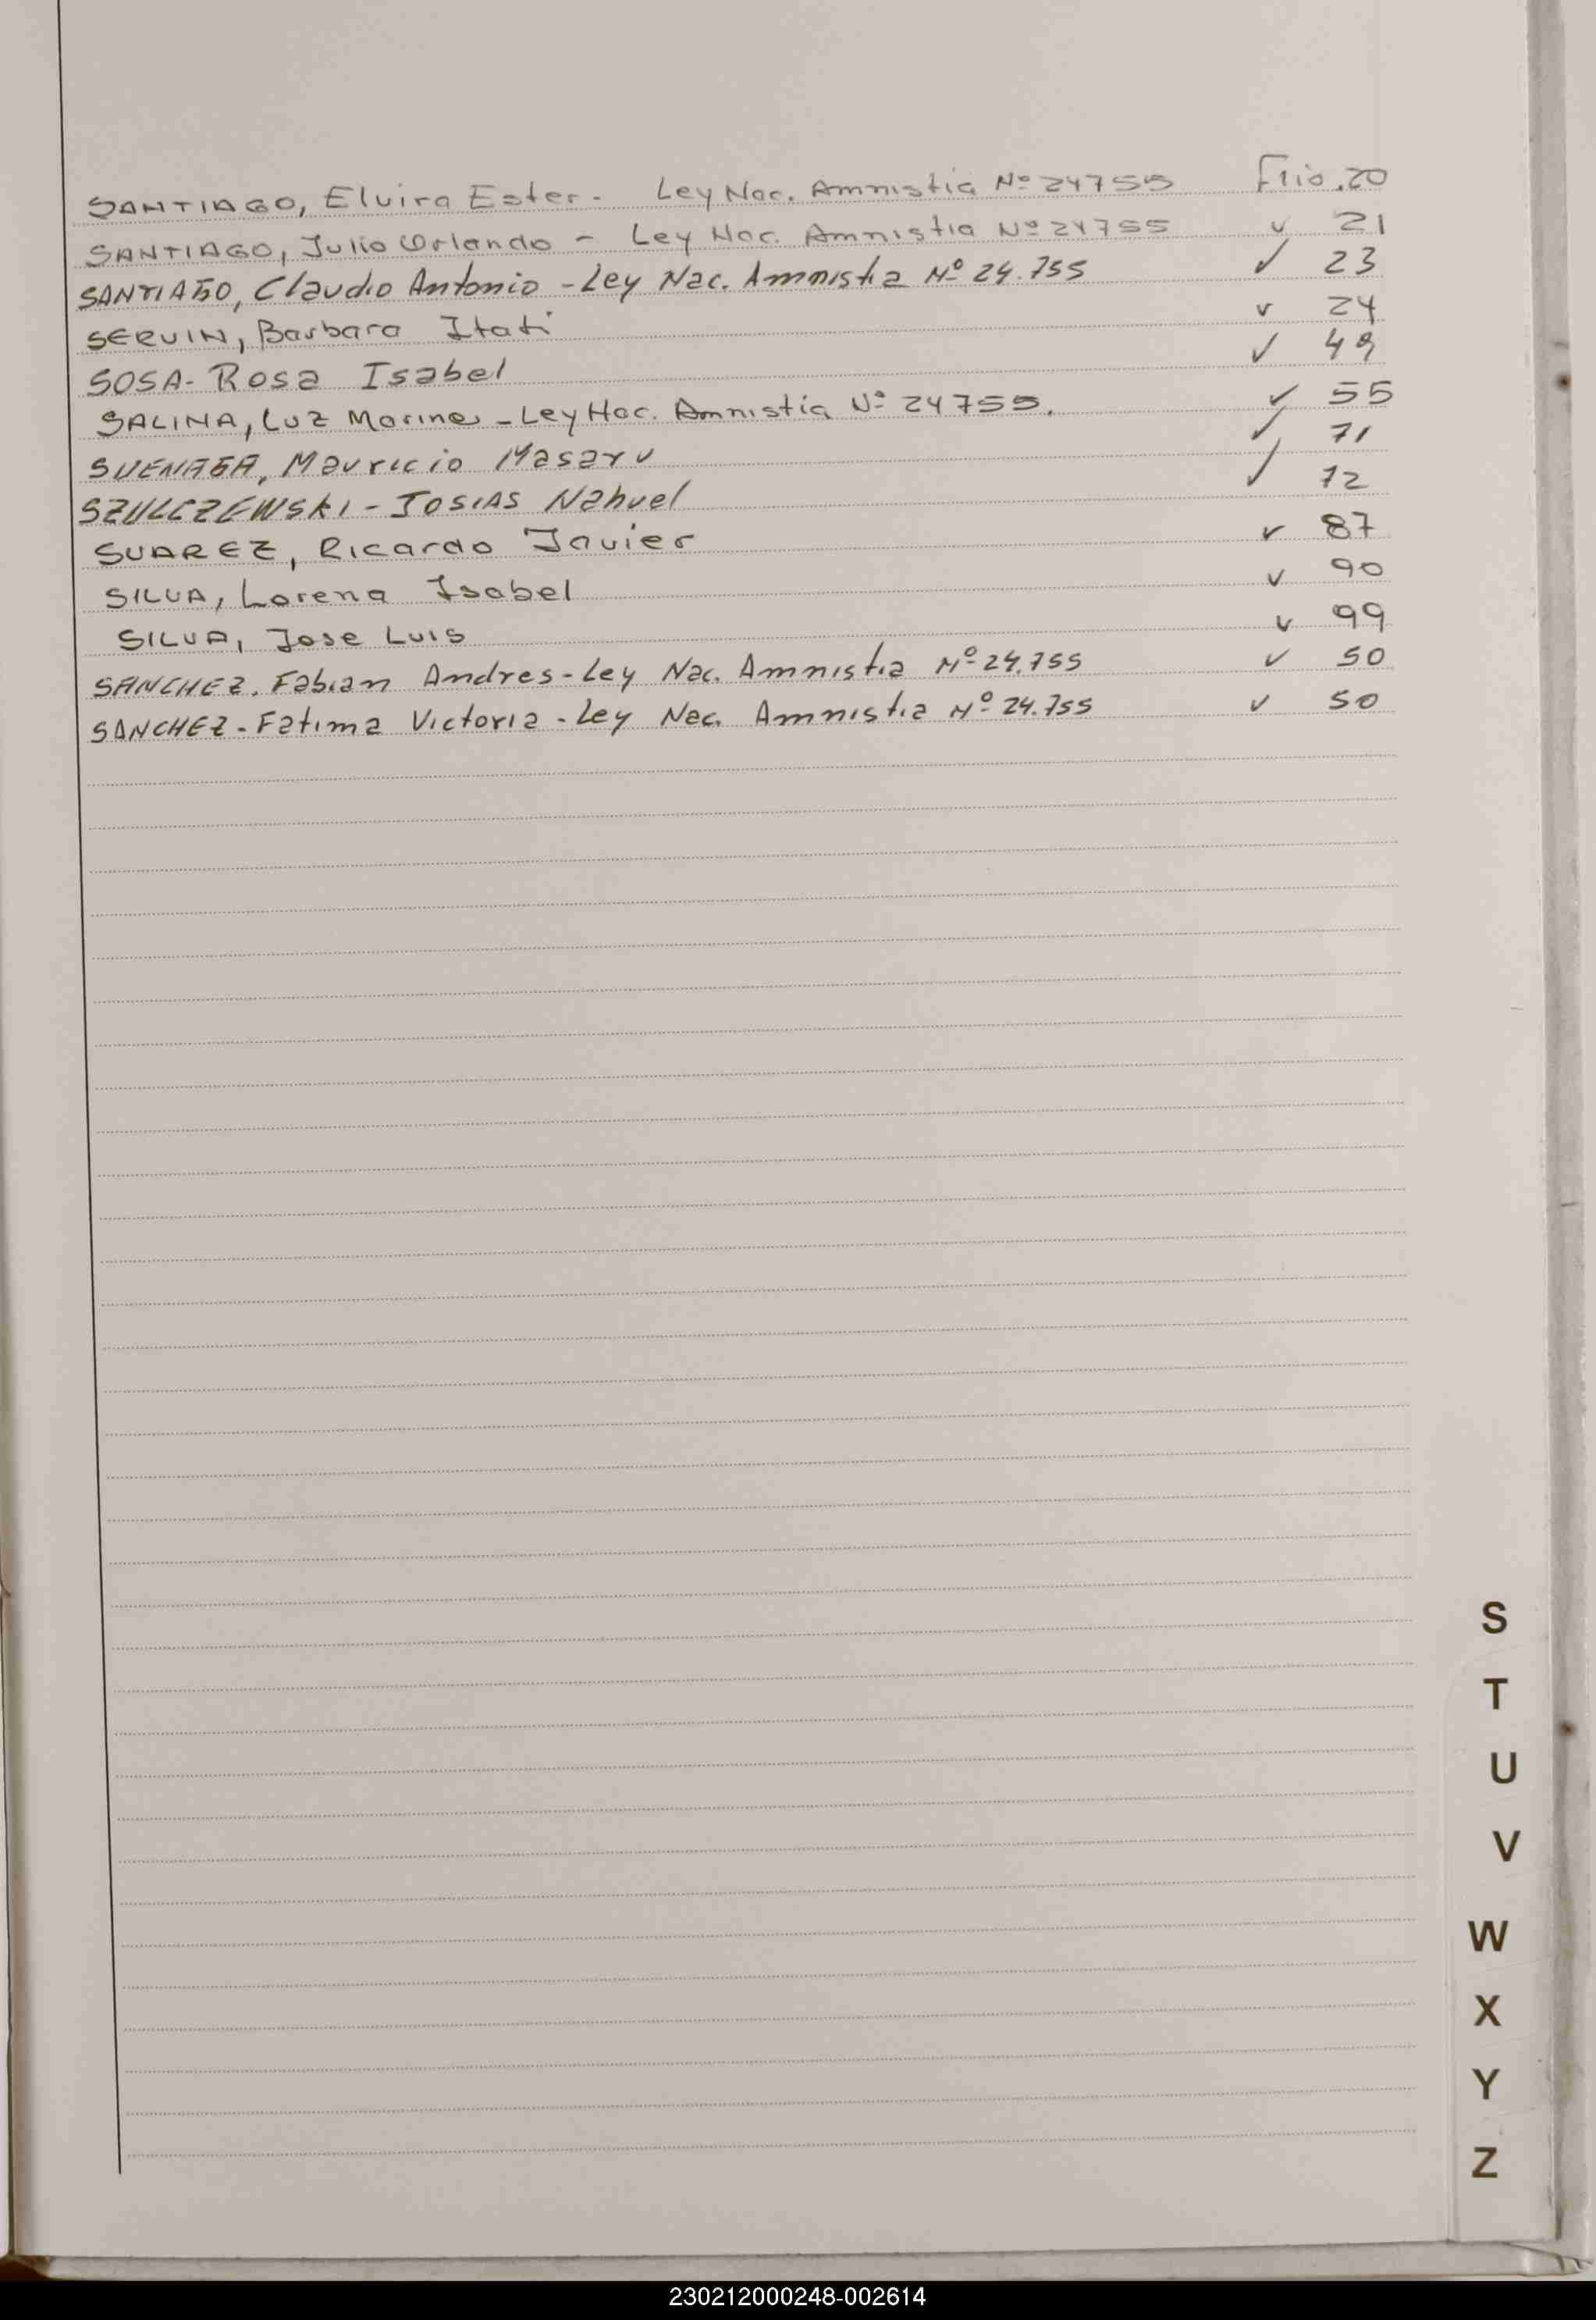 SANTIAGO, Elvira Ester - Ley Nac. Amnistia Nº 24755 Flio. 20
SANTIAGO, Julio Orlando - Ley Nac. Amnistia Nº 24755 ✓ 21
SANTIAGO, Claudio Antonio - Ley Nac. Amnistia Nº 24.755 ✓ 23
SERVIN, Barbara Itati ✓ 24
SOSA - Rosa Isabel ✓ 49
SALINA, Luz Marina - Ley Nac. Amnistia Nº 24755. ✓ 55
SUENAGA, Mauricio Masaru ✓ 71
SZULCZEWSKI - JOSIAS Nahuel ✓ 72
SUAREZ, Ricardo Javier ✓ 87
SILVA, Lorena Isabel ✓ 90
SILVA, Jose Luis ✓ 99
SANCHEZ. Fabian Andres - Ley Nac. Amnistia Nº 24.755 ✓ 50
SANCHEZ - Fatima Victoria - Ley Nac. Amnistia Nº 24.755 ✓ 50
S
T
U
V
W
X
Y
Z
230212000248-002614